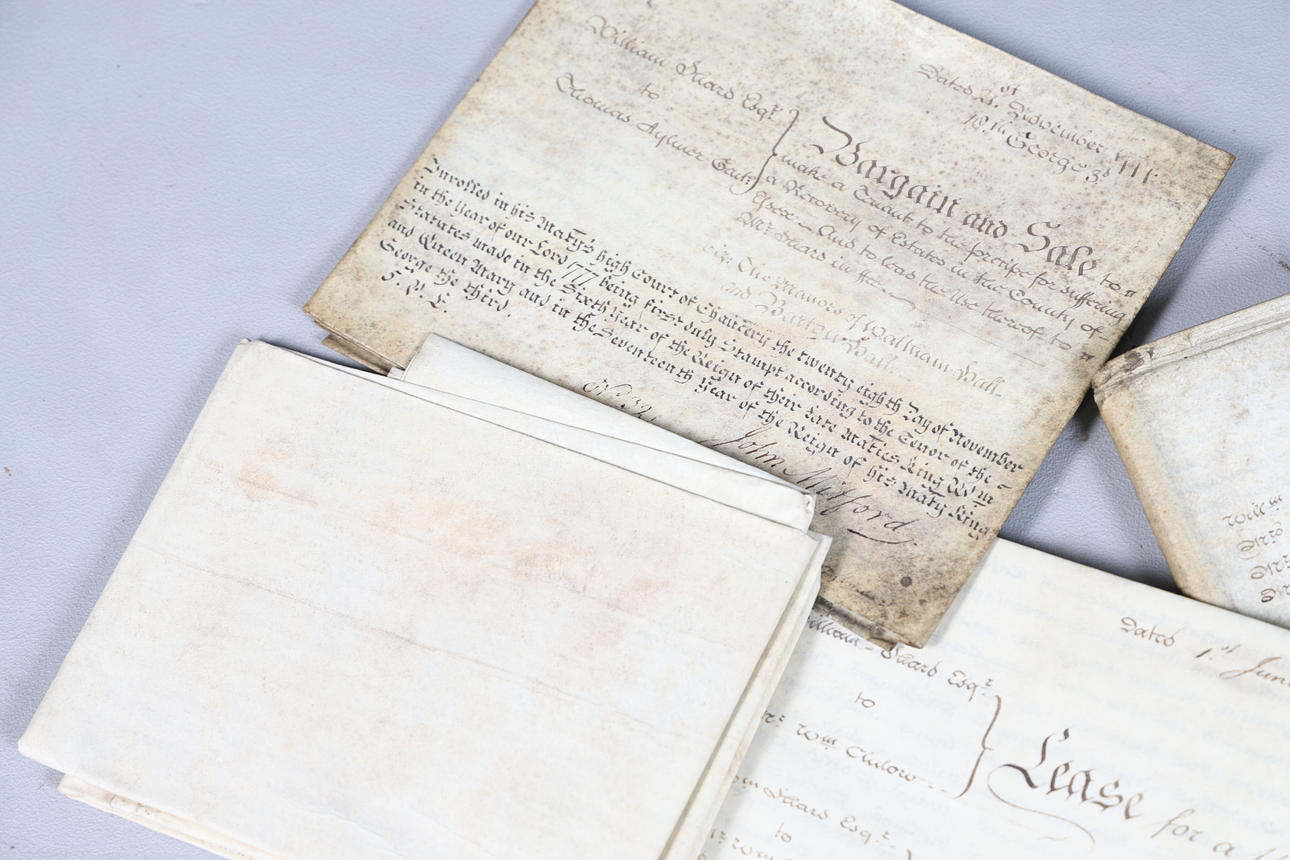 Dated 21st November 1777.
18th George 3d
William Suard Esqr
to
Thomas Aylmer Gent
Bargain and Sale to
make a Tenant to the precipe for suffering
a Recovery of Estates in the County of
Essex – And to lead the Use thereof to
Mr Suard in ffee
The Manors of Waltham Hall
and Barton Hall
Inrolled in his Maty's high Court of Chancery the twenty eighth Day of November
in the Year of our Lord 1777 being first duly Stampt according to the Tenor of the
Statutes made in the Sixth Year of the Reign of their Late Maties King Wm
and Queen Mary and in the Seventeenth Year of the Reign of his Maty King
George the third.
John Mitford
Dated 1st June
William Suard Esqr
to
Wm Clulow
Lease for a
Suard Esqr
to